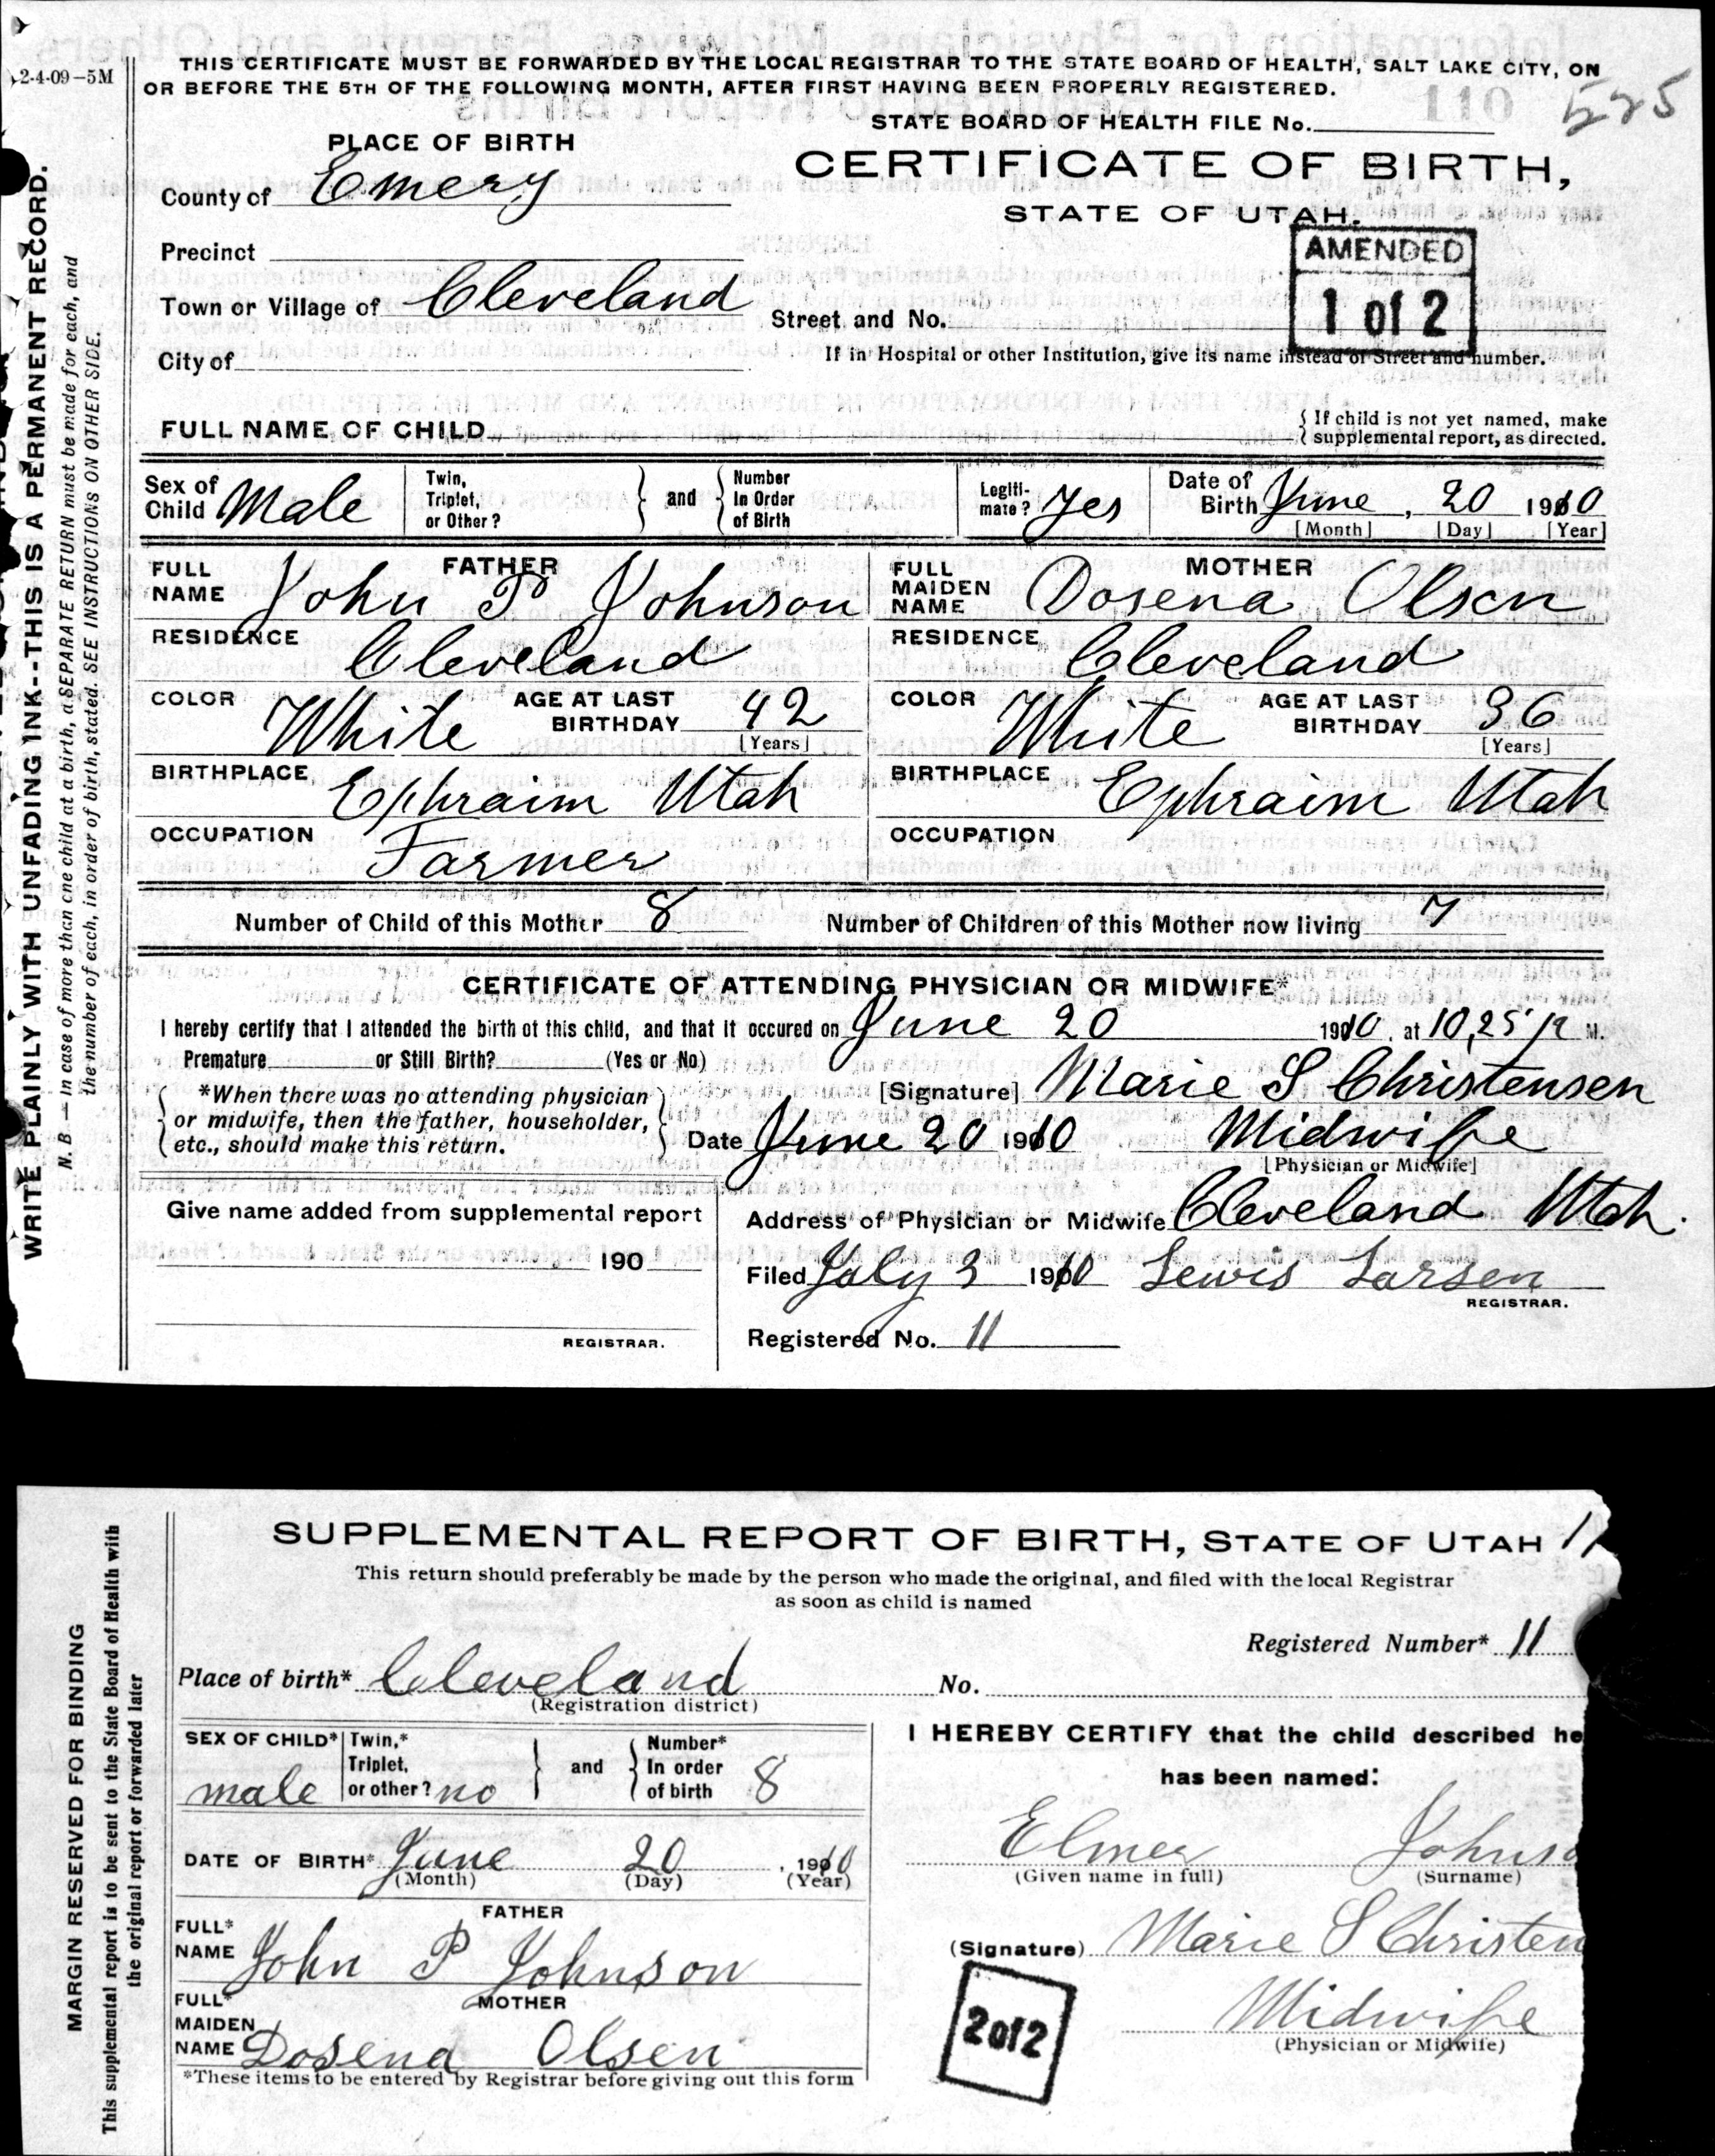 2-4-09—5M
THIS CERTIFICATE MUST BE FORWARDED BY THE LOCAL REGISTRAR TO THE STATE BOARD OF HEALTH, SALT LAKE CITY, ON
OR BEFORE THE 5TH OF THE FOLLOWING MONTH, AFTER FIRST HAVING BEEN PROPERLY REGISTERED.
110 525
STATE BOARD OF HEALTH FILE No.
PLACE OF BIRTH
CERTIFICATE OF BIRTH,
County of Emery
STATE OF UTAH.
AMENDED
1 of 2
Precinct
Town or Village of Cleveland
Street and No.
City of
If in Hospital or other Institution, give its name instead of Street and number.
FULL NAME OF CHILD
If child is not yet named, make
supplemental report, as directed.
Sex of Child Male
Twin, Triplet, or Other?
and
Number In Order of Birth
Legiti-mate? Yes
Date of Birth June, 20 1910
[Month] [Day] [Year]
FATHER
FULL NAME John P Johnson
MOTHER
FULL MAIDEN NAME Dosena Olsen
RESIDENCE Cleveland
RESIDENCE Cleveland
COLOR White AGE AT LAST BIRTHDAY 42 [Years]
COLOR White AGE AT LAST BIRTHDAY 36 [Years]
BIRTHPLACE Ephraim Utah
BIRTHPLACE Ephraim Utah
OCCUPATION Farmer
OCCUPATION
Number of Child of this Mother 8 Number of Children of this Mother now living 7
CERTIFICATE OF ATTENDING PHYSICIAN OR MIDWIFE*
I hereby certify that I attended the birth of this child, and that it occured on June 20 1910, at 10,25 P M.
Premature or Still Birth? (Yes or No)
[Signature] Marie S Christensen
*When there was no attending physician
or midwife, then the father, householder,
etc., should make this return.
Date June 20 1910 Midwife
[Physician or Midwife]
Give name added from supplemental report
190
REGISTRAR.
Address of Physician or Midwife Cleveland Utah.
Filed July 3 1910 Lewis Larsen
REGISTRAR.
Registered No. 11
WRITE PLAINLY WITH UNFADING INK--THIS IS A PERMANENT RECORD.
N. B.—In case of more than one child at a birth, a SEPARATE RETURN must be made for each, and
the number of each, in order of birth, stated. SEE INSTRUCTIONS ON OTHER SIDE.
SUPPLEMENTAL REPORT OF BIRTH, STATE OF UTAH
This return should preferably be made by the person who made the original, and filed with the local Registrar
as soon as child is named
Registered Number* 11
Place of birth* Cleveland No.
(Registration district)
SEX OF CHILD* male
Twin,* Triplet, or other? no
and
Number* In order of birth 8
I HEREBY CERTIFY that the child described he
has been named:
DATE OF BIRTH* June 20, 1910
(Month) (Day) (Year)
Elmer Johnso
(Given name in full) (Surname)
FATHER
FULL* NAME John P Johnson
(Signature) Marie S Christen
MOTHER
FULL* MAIDEN NAME Dosena Olsen
2 of 2
Midwife
(Physician or Midwife)
*These items to be entered by Registrar before giving out this form
MARGIN RESERVED FOR BINDING
This supplemental report is to be sent to the State Board of Health with
the original report or forwarded later